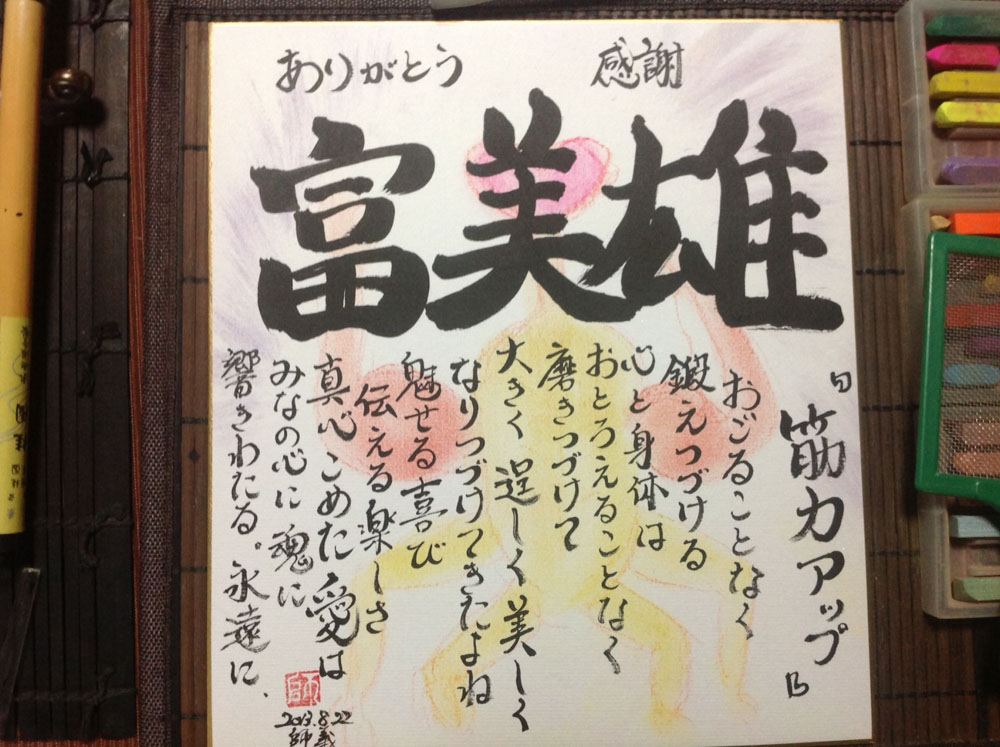 ありがとう 感謝
富美雄
『筋力アップ』
おごることなく
鍛えつづける
心と身体は
おとろえることなく
磨きつづけて
大きく逞しく美しく
なりつづけてきたよね
魅せる喜び
伝える楽しさ
真心こめた愛は
みなの心に魂に
響きわたる。永遠に、
2013.8.22